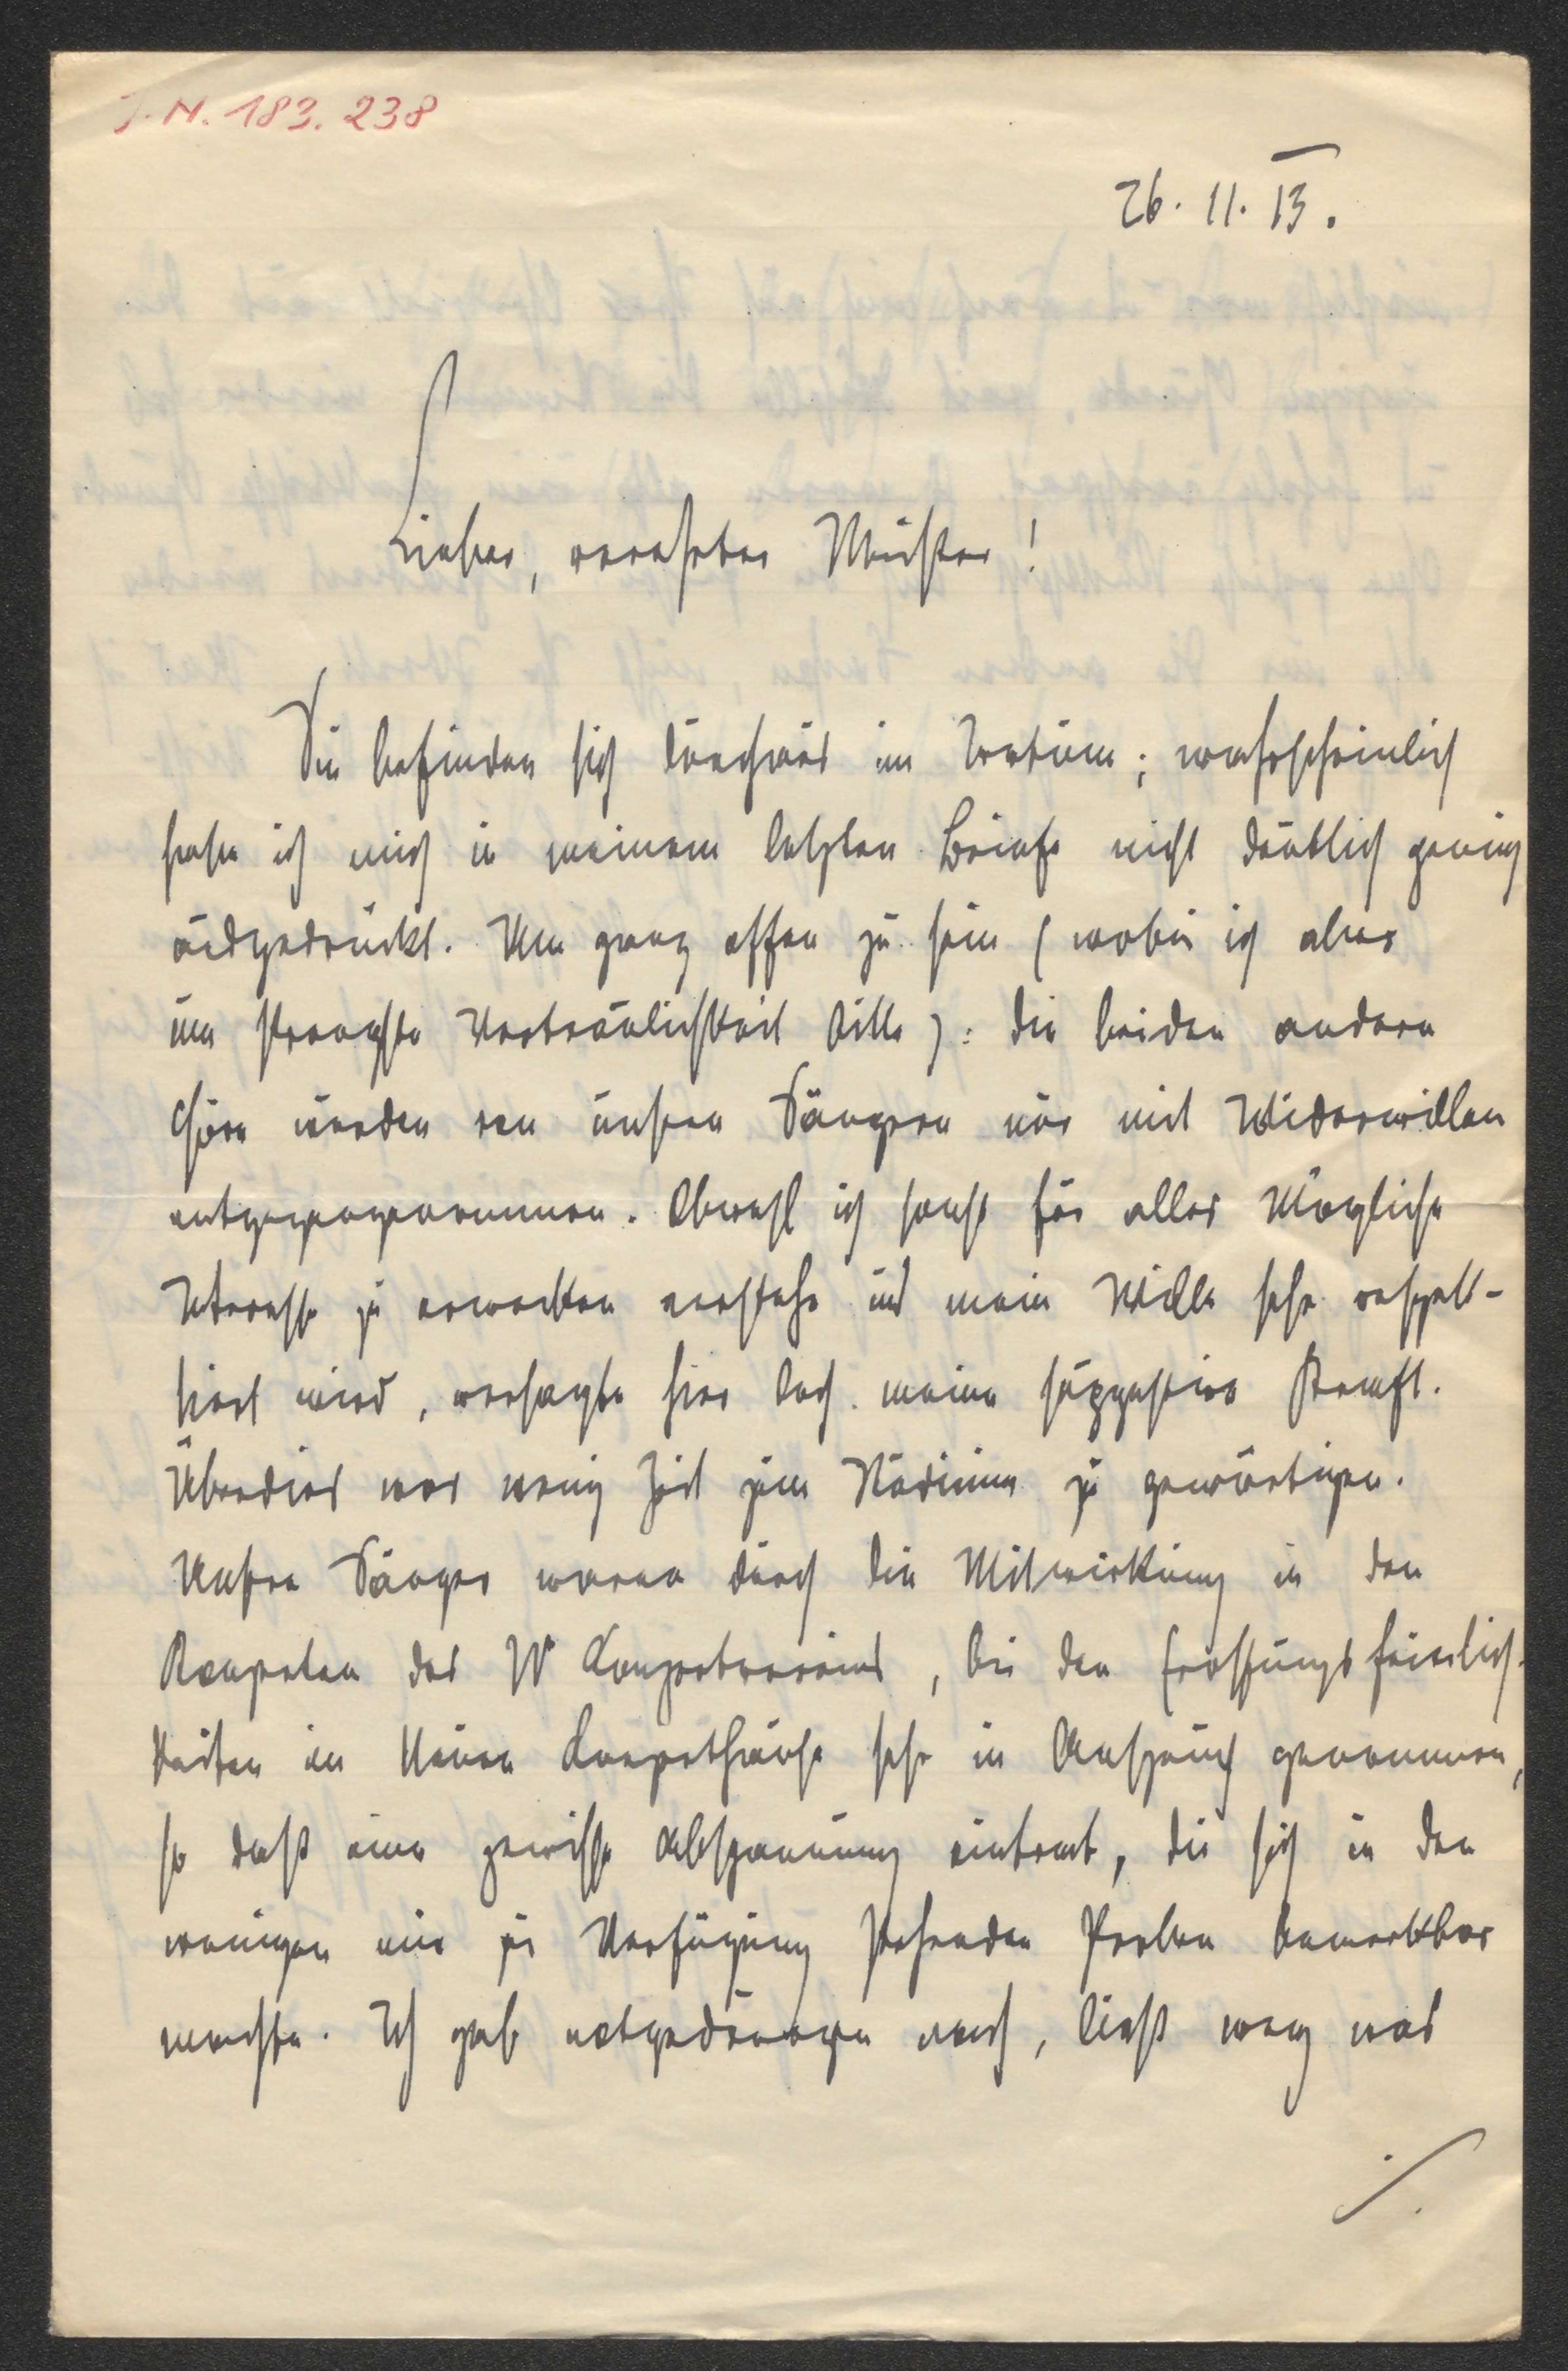 I. N. 183.238
26. 11. 13.
Lieber, verehrter Meister!
Sie befinden sich durchaus im Irrtum; wahrscheinlich
habe ich mich in meinem letzten Briefe nicht deutlich genug
ausgedrückt. Um ganz offen zu sein (wobei ich aber
um strengste Vertraulichkeit bitte): die beiden andern
Chöre wurden von unsern Sängern nur mit Widerwillen
entgegengenommen. Obwohl ich sonst für alles Mögliche
Interesse zu erwecken verstehe und mein Wille sehr respek-
tiert wird, versagte hier doch meine suggestive Kraft.
Überdies war wenig Zeit zum Studium zu gewärtigen.
Unsre Sänger waren durch die Mitwirkung in den
Konzerten des W Konzertvereins, bei den Eröffnungsfeierlich-
keiten im Neuen Konzerthause sehr in Anspruch genommen,
so daß eine gewisse Abspannung eintrat, die sich in den
wenigen mir zur Verfügung stehenden Proben bemerkbar
machte. Ich gab notgedrungen nach, ließ weg was
./.